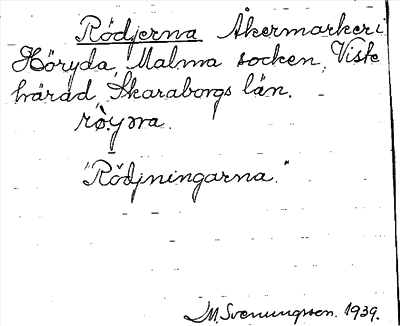 Rödjerna Åkermarker i
Höryda, Malma socken, Viste
härad, Skaraborgs län.
"Rödjningarna."
M. Svenungsson. 1939.